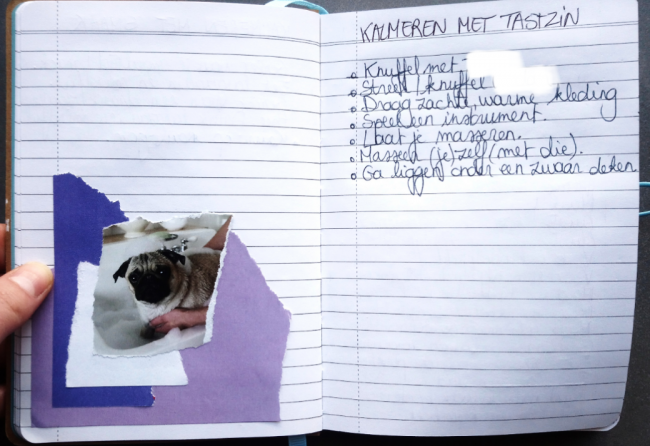 KALMEREN MET TASTZIN
Knuffel met
Streel / knuffel
Draag zachte, warme kleding
Speel een instrument.
Laat je masseren.
Masseer (je)zelf (met olie).
Ga liggen onder een zwaar deken